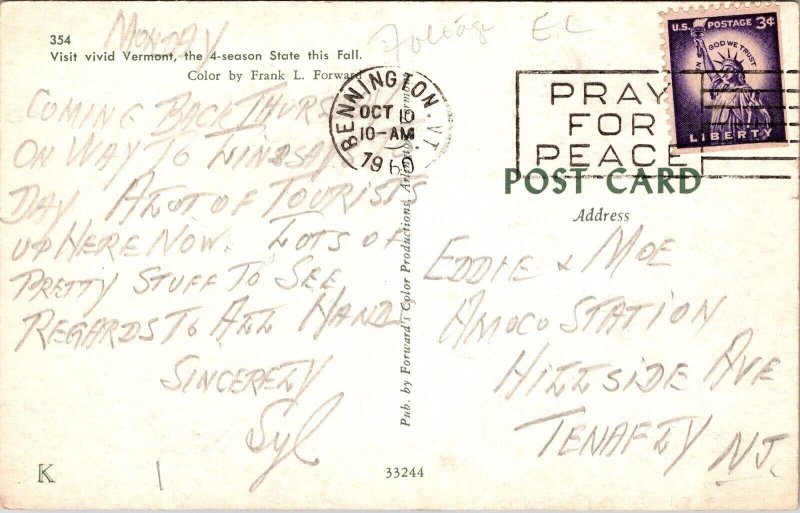 MONDAY
Foliage EL
354
Visit vivid Vermont, the 4-season State this Fall.
Color by Frank L. Forward
COMING BACK THURS
ON WAY TO LINDSAY
DAY ALOT OF TOURISTS
UP HERE NOW. LOTS OF
PRETTY STUFF TO SEE
REGARDS TO ALL HAND
SINCERELY
Syl
K
1
Pub. by Forward's Color Productions,
33244
BENNINGTON, VT.
OCT 10
10-AM
19
PRAY
FOR
PEACE
U.S. POSTAGE 3¢
IN GOD WE TRUST
LIBERTY
POST CARD
Address
EDDIE & MOE
AMOCO STATION
HILLSIDE AVE
TENAFLY NJ.